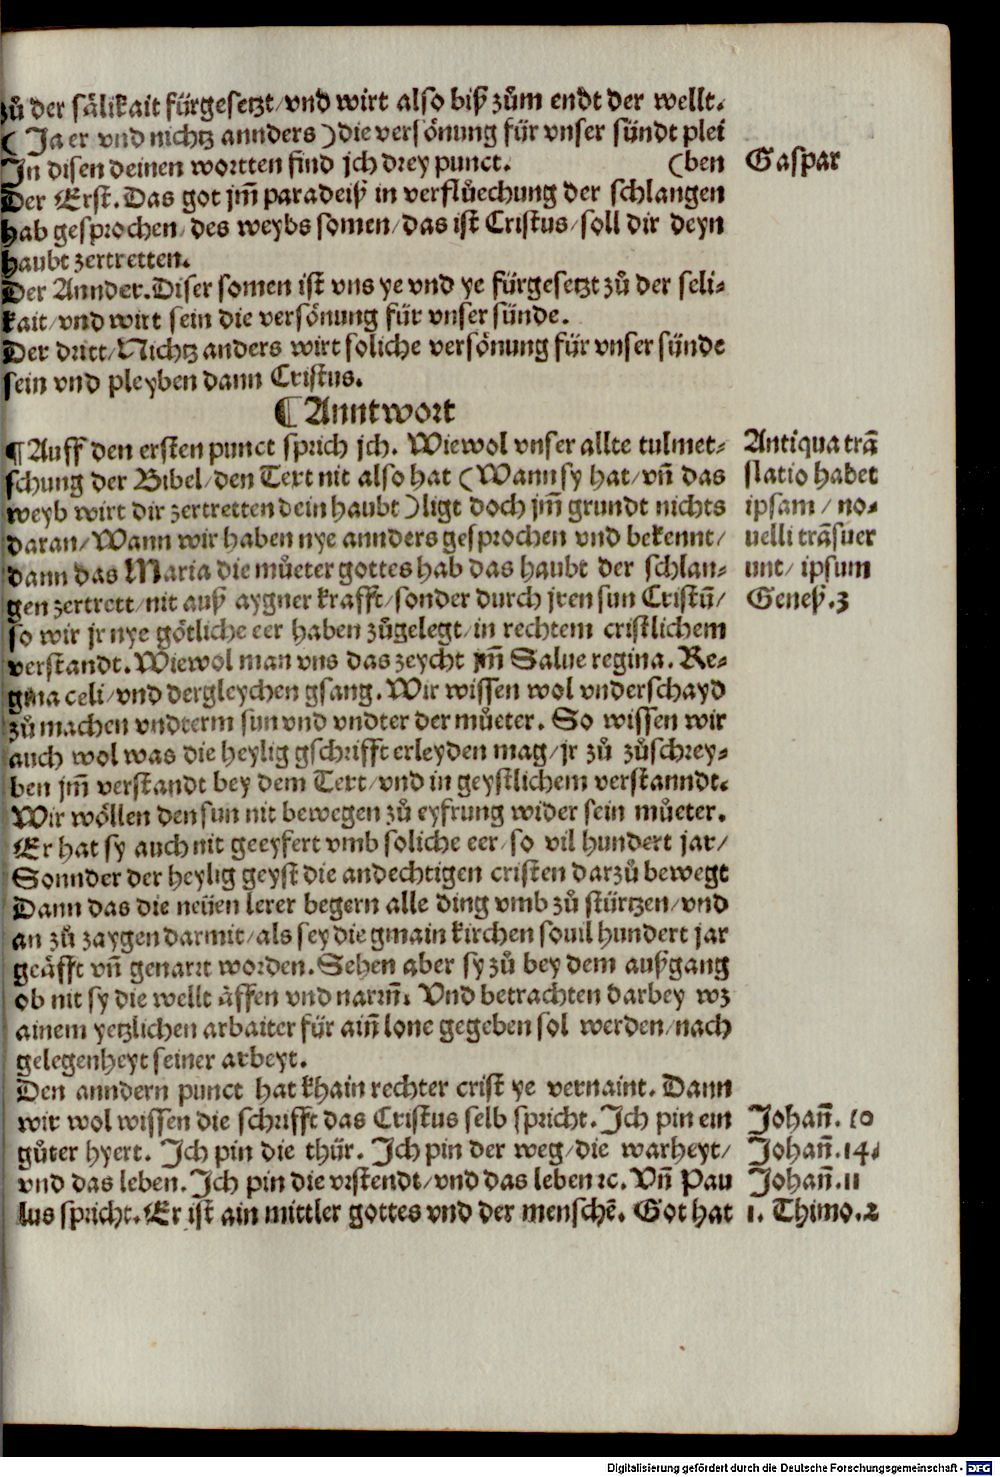 zů der sälikait fürgesetzt/vnd wirt also biß zům endt der wellt.
(Ja er vnd nichtz annders) die versönung für vnser sündt plei
In disen deinen wortten find jch drey punct. (ben
Gaspar
Der Erst. Das got jm̃ paradeiß in verflůechung der schlangen
hab gesprochen/des weybs somen/das ist Cristus/soll dir deyn
haubt zertretten.
Der Annder. Diser somen ist vns ye vnd ye fürgesetzt zů der seli-
kait/vnd wirt sein die versönung für vnser sünde.
Der dritt/Nichtz anders wirt soliche versönung für vnser sünde
sein vnd pleyben dann Cristus.
¶ Anntwort
¶ Auff den ersten punct sprich jch. Wiewol vnser allte tulmet-
schung der Bibel/den Text nit also hat (Wann sy hat/vñ das
weyb wirt dir zertretten dein haubt) ligt doch jm̃ grundt nichts
daran/Wann wir haben nye annders gesprochen vnd bekennt/
dann das Maria die můeter gottes hab das haubt der schlan-
gen zertrett/nit auß aygner krafft/sonder durch jren sun Cristũ/
so wir jr nye götliche eer haben zůgelegt/in rechtem cristlichem
verstandt. Wiewol man vns das zeycht jm̃ Salue regina. Re-
gina celi/vnd dergleychen gsang. Wir wissen wol vnderschayd
zů machen vndterm sun vnd vndter der můeter. So wissen wir
auch wol was die heylig gschrifft erleyden mag/jr zů zůschrey-
ben jm̃ verstandt bey dem Text/vnd in geystlichem verstanndt.
Wir wöllen den sun nit bewegen zů eyfrung wider sein můeter.
Er hat sy auch nit geeyfert vmb soliche eer/so vil hundert jar/
Sonnder der heylig geyst die andechtigen cristen darzů bewegt
Dann das die neüen lerer begern alle ding vmb zů stürtzen/vnd
an zů zaygen darmit/als sey die gmain kirchen souil hundert jar
geäfft vñ genarrt worden. Sehen aber sy zů bey dem außgang
ob nit sy die wellt äffen vnd narrñ. Vnd betrachten darbey wz
ainem yetzlichen arbaiter für aiñ lone gegeben sol werden/nach
gelegenheyt seiner arbeyt.
Den anndern punct hat khain rechter crist ye vernaint. Dann
wir wol wissen die schrifft das Cristus selb spricht. Ich pin ein
gůter hyert. Ich pin die thür. Ich pin der weg/die warheyt/
vnd das leben. Ich pin die vrstendt/vnd das leben ⁊c. Vñ Pau
lus spricht. Er ist ain mittler gottes vnd der menschẽ. Got hat
Antiqua trã
slatio habet
ipsam/no-
uelli trãsuer
unt/ipsum
Geneß.3
Johañ. 10
Johañ.14.
Johañ.11
1. Thimo.2
Digitalisierung gefördert durch die Deutsche Forschungsgemeinschaft - DFG